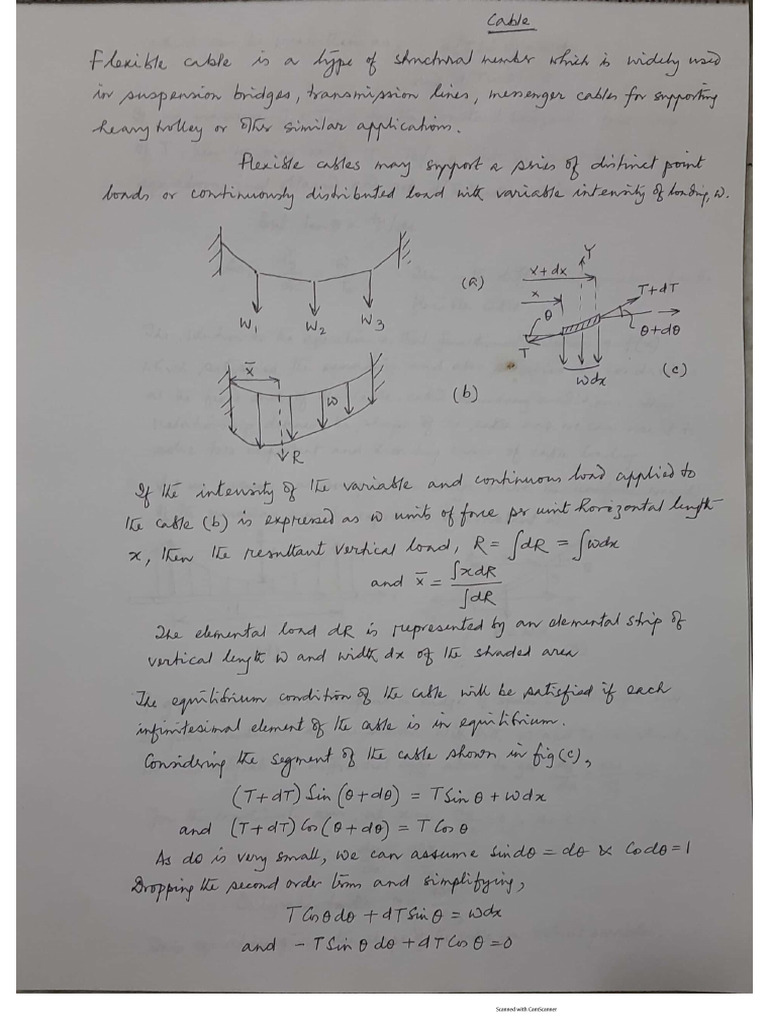 Cable
Flexible cable is a type of structural member which is widely used
in suspension bridges, transmission lines, messenger cables for supporting
heavy trolley or other similar applications.
Flexible cables may support a series of distinct point
loads or continuously distributed load with variable intensity of loading, w.
(a)
W1 W2 W3
x+dx
x
Y
T+dT
θ
θ+dθ
T
wdx
(c)
x̄
w
R
(b)
If the intensity of the variable and continuous load applied to
the cable (b) is expressed as w units of force per unit horizontal length
x, then the resultant vertical load, R = ∫dR = ∫wdx
and x̄ = ∫xdR / ∫dR
The elemental load dR is represented by an elemental strip of
vertical length w and width dx of the shaded area
The equilibrium condition of the cable will be satisfied if each
infinitesimal element of the cable is in equilibrium.
Considering the segment of the cable shown in fig (c),
(T+dT) Sin (θ+dθ) = T Sin θ + wdx
and (T+dT) Cos (θ+dθ) = T Cos θ
As dθ is very small, we can assume sindθ = dθ & Cosdθ = 1
Dropping the second order terms and simplifying,
T Cos θ dθ + dT Sin θ = wdx
and - T Sin θ dθ + dT Cos θ = 0
Scanned with CamScanner